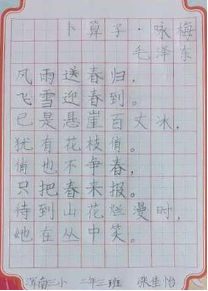 卜算子·咏梅
毛泽东
风雨送春归，
飞雪迎春到。
已是悬崖百丈冰，
犹有花枝俏。
俏也不争春，
只把春来报。
待到山花烂漫时，
她在丛中笑。
河南三小 二年三班 张佳怡